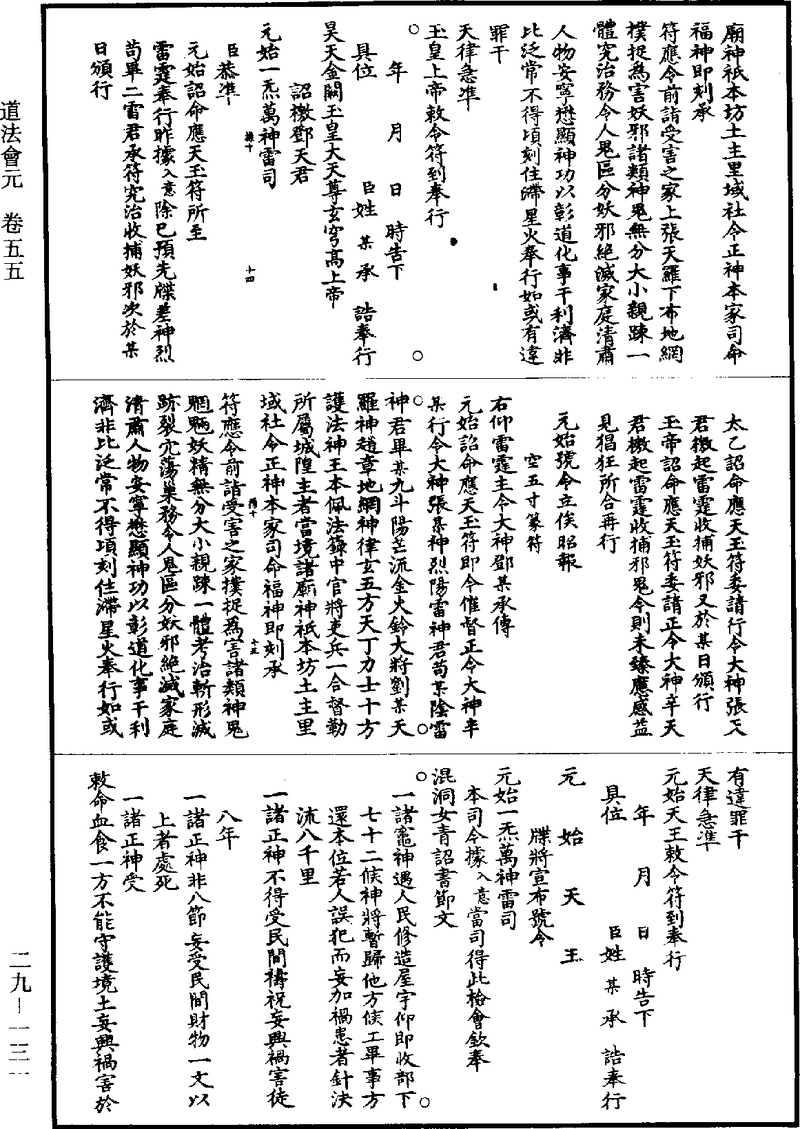 廟神祇本坊土主里域社令正神本家司命
福神即刻承
符應令前詣受害之家上張天羅下布地網
撲捉為害妖邪諸類神鬼無分大小親踈一
體究治務令人鬼區分妖邪絕滅家庭清肅
人物安寧懋顯神功以彰道化事干利濟非
比泛常不得頃刻住滯星火奉行如或有違
罪干
天律急準
玉皇上帝敕令符到奉行
年 月 日 時告下
具位 臣姓 某 承 誥奉行
昊天金闕玉皇大天尊玄穹高上帝
詔檄鄧天君
元始一炁萬神雷司
臣恭準
元始詔命應天玉符所至
雷霆奉行昨據入意除已預先牒差神烈
苟畢二雷君承符究治收捕妖邪次於某
日頒行
太乙詔命應天玉符委請行令大神張天
君檄起雷霆收捕妖邪又於某日頒行
玉帝詔命應天玉符委請正令大神辛天
君檄起雷霆收捕邪鬼令則未臻應感益
見猖狂所合再行
元始號令立俟昭報
空五寸篆符
右仰雷霆主令大神鄧某承傳
元始詔命應天玉符即今催督正令大神辛
某行令大神張某神烈陽雷神君苟某陰雷
神君畢某九斗陽芒流金火鈴大將劉某天
羅神趙章地網神律玄五方天丁力士十方
護法神王本佩法籙中官將吏兵一合督勤
所屬城隍主者當境諸廟神祇本坊土主里
域社令正神本家司命福神即刻承
符應令前詣受害之家撲捉為害諸類神鬼
魍魎妖精無分大小親踈一體考治斬形滅
跡裂穴蕩巢務令人鬼區分妖邪絕滅家庭
清肅人物安寧懋顯神功以彰道化事干利
濟非比泛常不得頃刻住滯星火奉行如或
有違罪干
天律急準
元始天王敕令符到奉行
年 月 日 時告下
具位 臣姓 某 承 誥奉行
元 始 天 王
牒將宣布號令
元始一炁萬神雷司
本司今據入意當司得此檢會欽奉
混洞女青詔書節文
一諸竈神遇人民修造屋宇仰即收部下
七十二候神將暫歸他方候工畢事方
還本位若人誤犯而妄加禍患者針決
流八千里
一諸正神不得受民間禱祝妄興禍害徒
八年
一諸正神非八節妄受民間財物一文以
上者處死
一諸正神受
敕命血食一方不能守護境土妄興禍害於
道法會元 卷五五
二九—一三一